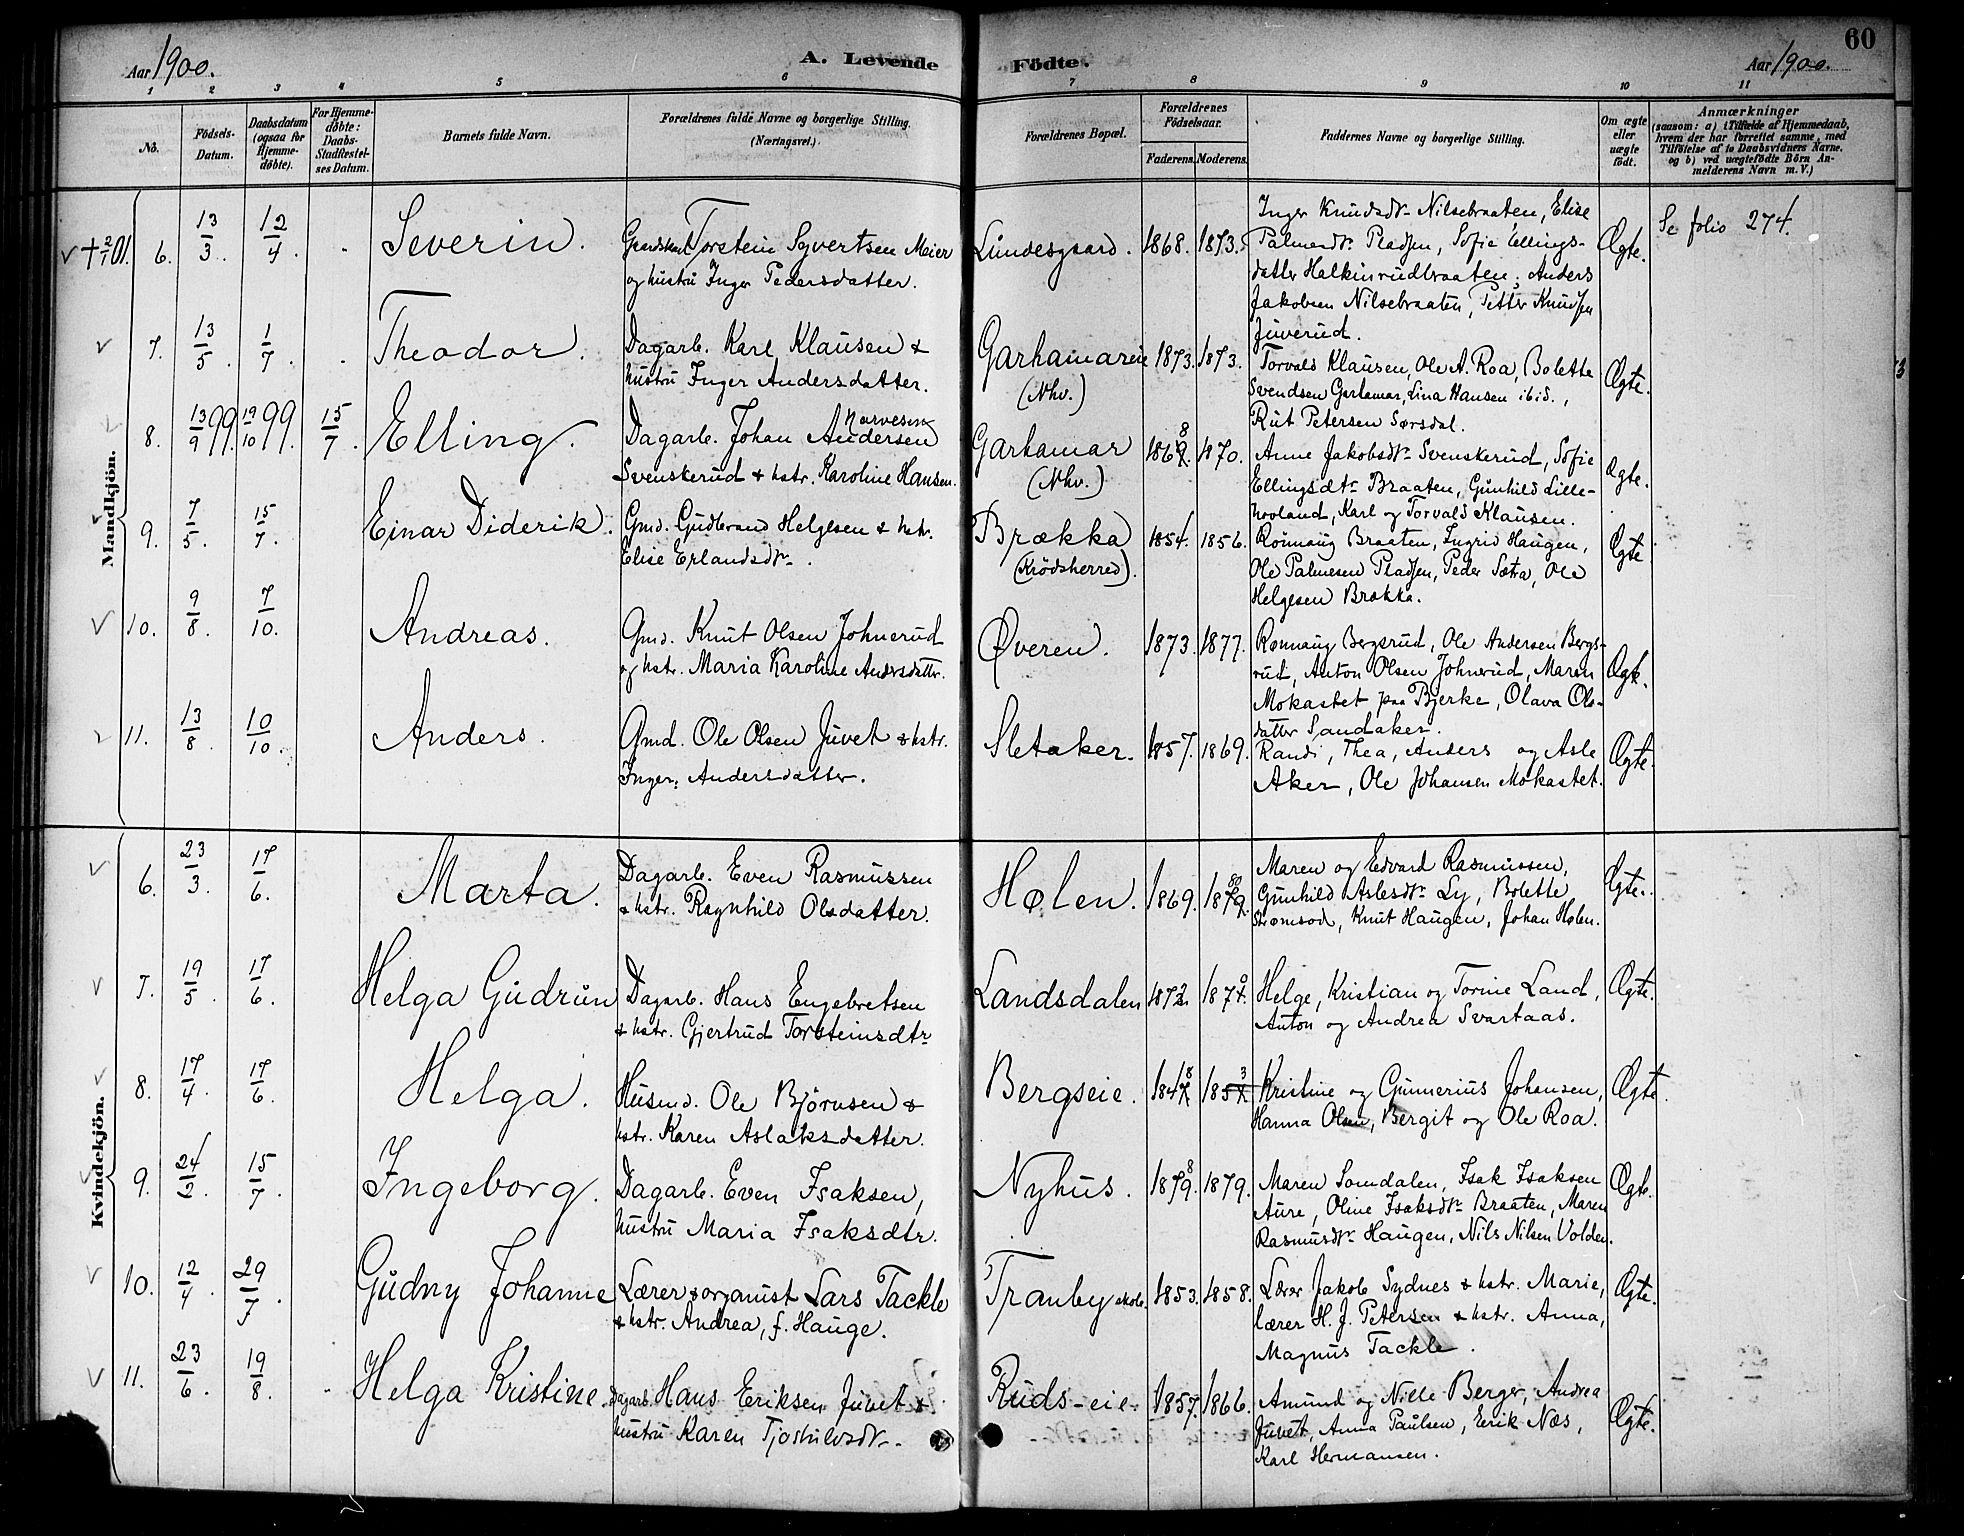 Aar 1900.
A. Levende Fødte.
Aar 1900.
60
1 2 3 4 5 6 7 8 9 10 11
No.
Fødsels-Datum.
Daabsdatum (ogsaa for Hjemme-døbte).
For Hjemme-døbte: Daabs-Stadfæstel-ses Datum.
Barnets fulde Navn.
Forældrenes fulde Navne og borgerlige Stilling. (Næringsvei.)
Forældrenes Bopæl.
Forældrenes Fødselsaar.
Faderens. Moderens.
Faddernes Navne og borgerlige Stilling.
Om ægte eller uægte født.
Anmærkninger
(saasom: a) i Tilfælde af Hjemmedaab, hvem der har forrettet samme, med Tilføielse af to Daabsvidners Navne, og b) ved uægtefødte Børn An-melderens Navn m. V.)
Mandkjøn.
6. 13/3. 12/4. Severin.
Torstein Syvertsen Meier
og hustru Inger Pedersdatter.
Lundesgaard. 1868. 1873.
Inger Knudsdtr Nilsebraaten, Elise
Palmesdtr Pladsen, Sofie Ellings-
datter Halkinrudbraaten, Anders
Jakobsen Nilsebraaten, Petter Knudsen
Juverud.
Ægte.
Se folio 274.
7. 13/5. 1/7. Theodor.
Dagarb. Karl Klausen &
hustru Inger Andersdatter.
Garhamareie
(Nhv.)
1873. 1873.
Torvald Klausen, Ole A. Roa, Bolette
Svendsen Garhamar, Lina Hansen ibid.,
Rut Petersen Sørsdal.
Ægte.
8. 13/9 99. 19/10 99. 15/7. Elling.
Narvesen
Dagarb. Johan Andersen
Svenskerud & hstr. Karoline Hansen.
Garhamar
(Nhv.)
8
1869. 1870.
Anne Jakobsdtr Svenskerud, Sofie
Ellingsdtr Braaten, Gunhild Lille-
hovland, Karl og Torvald Klausen.
Ægte.
9. 7/5. 15/7. Einar Diderik.
Gmd. Gudbrand Helgesen & hstr.
Elise Erlandsdtr.
Brækka
(Krödsherred).
1854. 1856.
Rönnaug Braaten, Ingrid Haugen,
Ole Palmesen Pladsen, Peder Sætra, Ole
Helgesen Brækka.
Ægte
10. 9/8. 7/10. Andreas.
Gmd. Knut Olsen Johnrud
og hstr. Maria Karoline Andersdatter.
Øveren. 1873. 1877.
Rønnaug Bergsrud, Ole Andersen Bergs-
rud, Anton Olsen Johnrud, Maren
Mokastet paa Bjerke, Olava Ols-
datter Sandaker.
Ægte.
11. 13/8. 10/10. Anders.
Gmd. Ole Olsen Juvet & hstr.
Inger Andersdatter.
Sletaker. 1857. 1869.
Randi, Thea, Anders og Asle
Aker, Ole Johansen Mokastet.
Ægte.
Kvindekjön.
6. 23/3. 17/6. Marta.
Dagarb. Even Rasmussen
& hstr. Ragnhild Olsdatter.
Hølen. 1869.
80
1879.
Maren og Edvard Rasmussen,
Gunhild Aslesdtr Ly, Bolette
Strømsod, Knut Haugen, Johan Hølen.
Ægte.
7. 19/5. 17/6. Helga Gudrun
Dagarb. Hans Engebretsen
& hstr. Gjertrud Torsteinsdtr
Landsdalen 1872. 187
Helge, Kristian og Torine Land,
Anton og Andrea Svartaas.
Ægte.
8. 17/4. 17/6. Helga.
Husmd. Ole Björnsen &
hstr. Karen Aslaksdatter.
Bergseie.
8 3
184 185
Kristine og Gunnerius Johansen,
Hanna Olsen, Bergit og Ole Roa.
Ægte.
9. 24/2. 15/7. Ingeborg.
Dagarb. Even Isaksen,
hustru Maria Isaksdtr.
Nyhus.
8
1879. 1879.
Maren Somdalen, Isak Isaksen
Aure, Oline Isaksdtr Braaten, Maren
Rasmusdtr Haugen, Nils Nilsen Volden.
Ægte.
10. 12/4. 29/7. Gudny Johanne
Lærer & organist Lars Tackle
& hstr. Andrea, f. Hauge.
Tranby skole. 1853. 1858.
Lærer Jakob Sydnes & hstr. Marie,
lærer H. J. Petersen & hstr. Anna,
Magnus Tackle.
Ægte.
11. 23/6. 19/8. Helga Kristine.
Dagarb. Hans Eriksen Juvet &
hustru Karen Tjostulvsdtr.
Ruds-eie. 1857. 1866.
Amund og Nille Berger, Andrea
Juvet, Anna Paulsen, Eerik Næs,
Karl Hermansen.
Ægte.